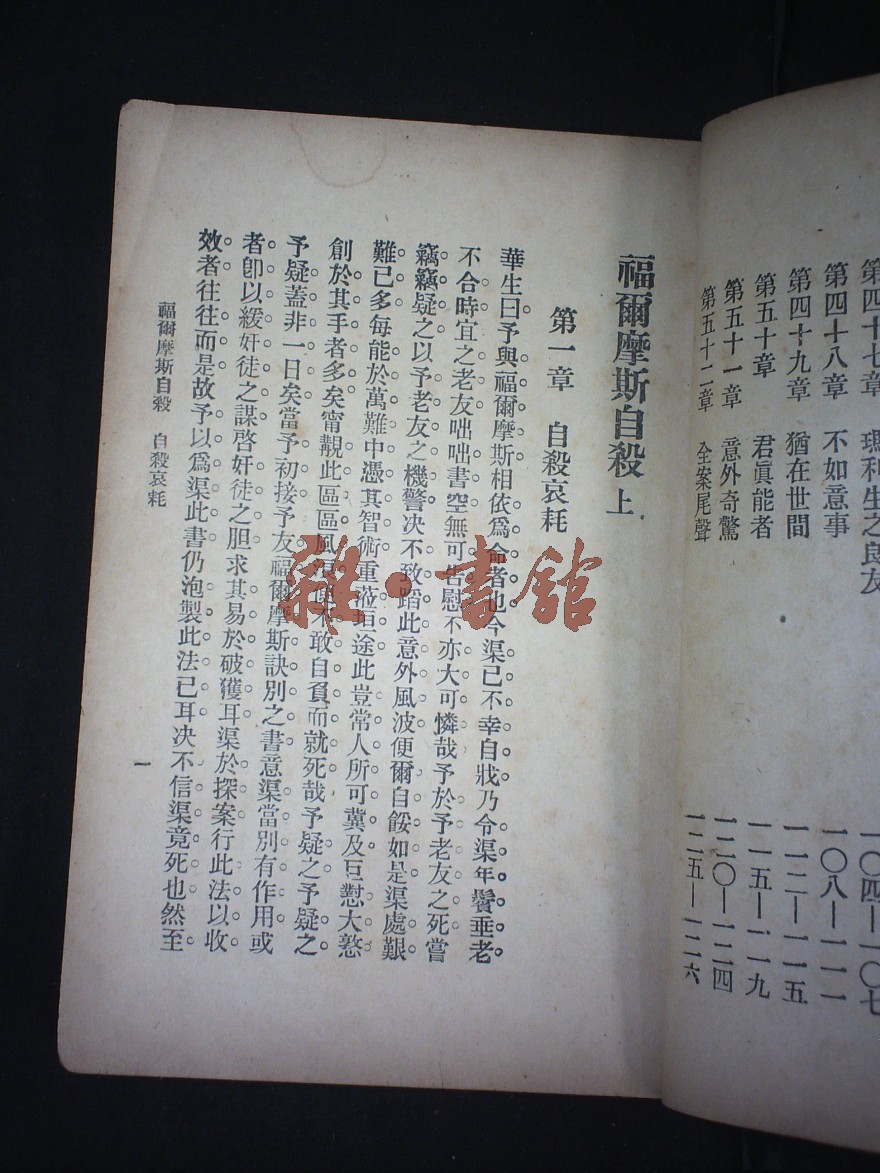 第四十七章 瑪利生之良友 一〇四—一〇七
第四十八章 不如意事 一〇八—一一一
第四十九章 猶在世間 一一二—一一五
第五十章 君眞能者 一一五—一一九
第五十一章 意外奇驚 一二〇—一二四
第五十二章 全案尾聲 一二五—一二六
福爾摩斯自殺 上
第一章 自殺哀耗
華生曰予與福爾摩斯相依爲命者也今渠已不幸自戕乃令渠年鬢垂老
不合時宜之老友咄咄書空無可告慰不亦大可憐哉予於予老友之死嘗
竊竊疑之以予老友之機警決不致蹈此意外風波便爾自餒如是渠處艱
難已多每能於萬難中憑其智術重蒞坦途此豈常人所可冀及巨懟大憝
創於其手者多矣甯覩此區區風浪便不敢自負而就死哉予疑之予疑之
予疑蓋非一日矣當予初接予友福爾摩斯訣別之書意渠當別有作用或
者卽以緩奸徒之謀啓奸徒之胆求其易於破獲耳渠於探案行此法以收
效者往往而是故予以爲渠此書仍泡製此法已耳決不信渠竟死也然至
福爾摩斯自殺 自殺哀耗
一
雜·書館